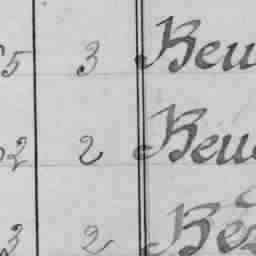 5 3 Beu
2 2 Beu
3 2 Bés